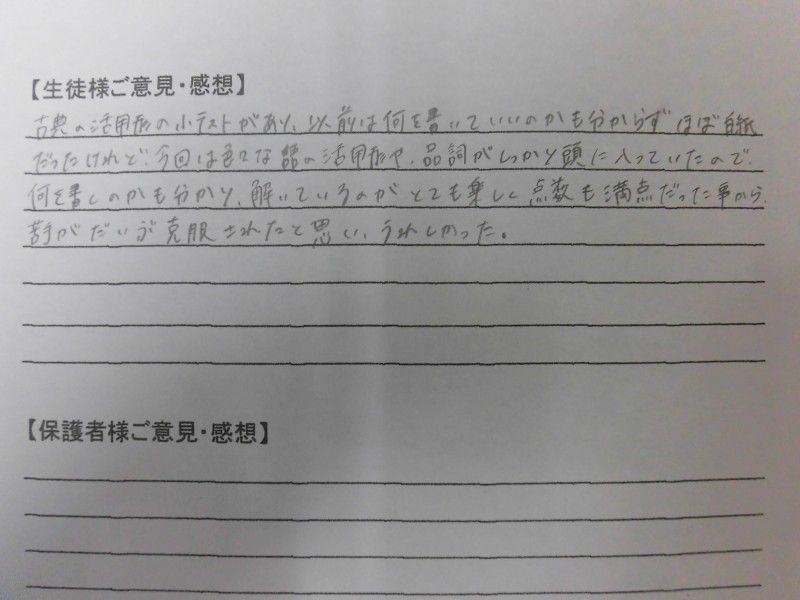 【生徒様ご意見・感想】
古典の活用形の小テストがあり、以前は何を書いていいのかも分からずほぼ白紙
だったけれど、今回は色々な語の活用形や、品詞がしっかり頭に入っていたので、
何を書くのかも分かり、解いているのがとても楽しく点数も満点だった事から、
苦手がだいぶ克服されたと思い、うれしかった。
【保護者様ご意見・感想】